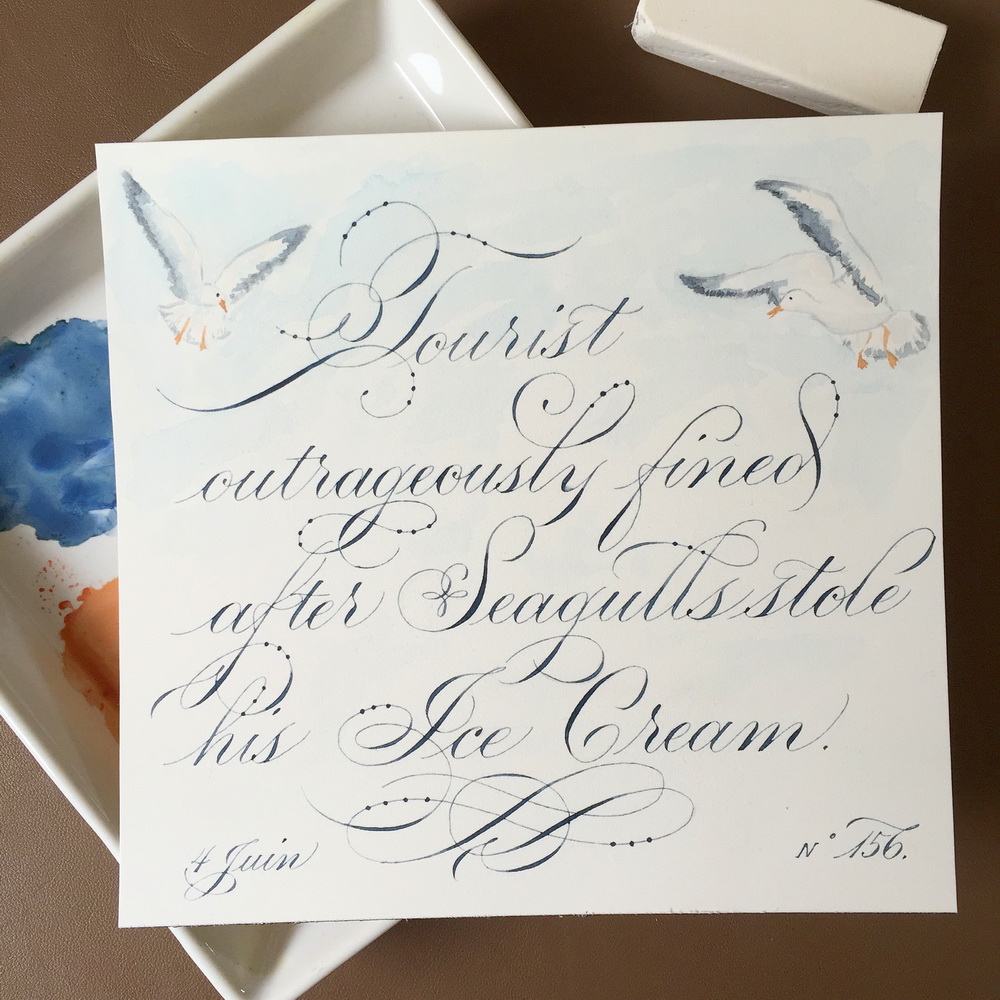 Tourist
outrageously fined
after Seagulls stole
his Ice Cream.
4 Juin
N° 156.